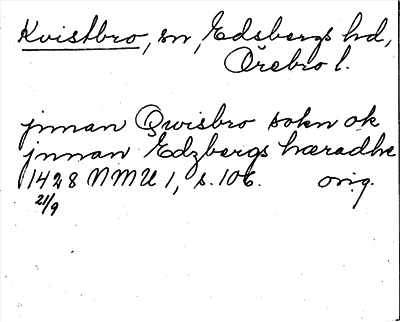 Kvistbro, sn, Edsbergs hd,
Örebro l.
jnnan Qwisbro sokn ok
jnnan Edzbergs hæradhe
1428 NMU 1, s. 106. orig.
21/9